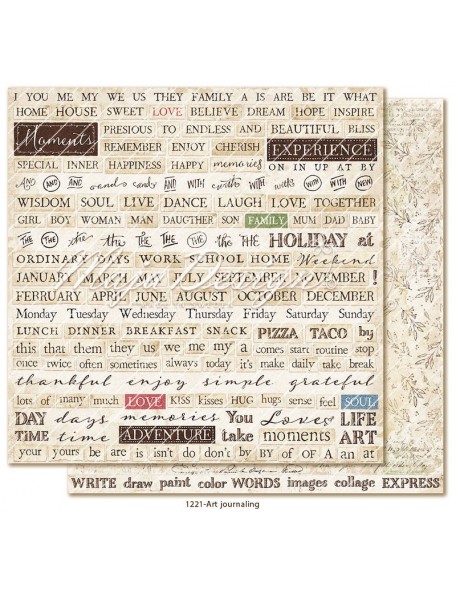 I YOU ME MY WE US THEY FAMILY A IS ARE BE IT WHAT
HOME HOUSE SWEET LOVE BELIEVE DREAM HOPE INSPIRE
Moments PRESIOUS TO ENDLESS AND BEAUTIFUL BLISS
REMEMBER ENJOY CHERISH EXPERIENCE
SPECIAL INNER HAPPINESS HAPPY memories ON IN UP AT BY
AND AND AND and and AND WITH with WITH with WITH WITH NEW
WISDOM SOUL LIVE DANCE LAUGH LOVE TOGETHER
GIRL BOY WOMAN MAN DAUGTHER SON FAMILY MUM DAD BABY
THE THE the the the THE THE the THE HOLIDAY at
ORDINARY DAYS WORK SCHOOL HOME Weekend
JANUARY MARCH MAY JULY SEPTEMBER NOVEMBER !
FEBRUARY APRIL JUNE AUGUST OCTOBER DECEMBER
Monday Tuesday Wednesday Thursday Friday Saturday Sunday
LUNCH DINNER BREAKFAST SNACK PIZZA TACO by
this that them they us we me my a comes start routine stop
once twice often sometimes always today it's make daily take break
thankful enjoy simple grateful
lots of many much LOVE KISS kisses HUG hugs sense feel SOUL
DAY days memories You Loves LIFE
TIME time ADVENTURE take moments ART
your yours be are is isn't do don't by BY of OF A an at
WRITE draw paint color WORDS images collage EXPRESS
1221-Art journaling